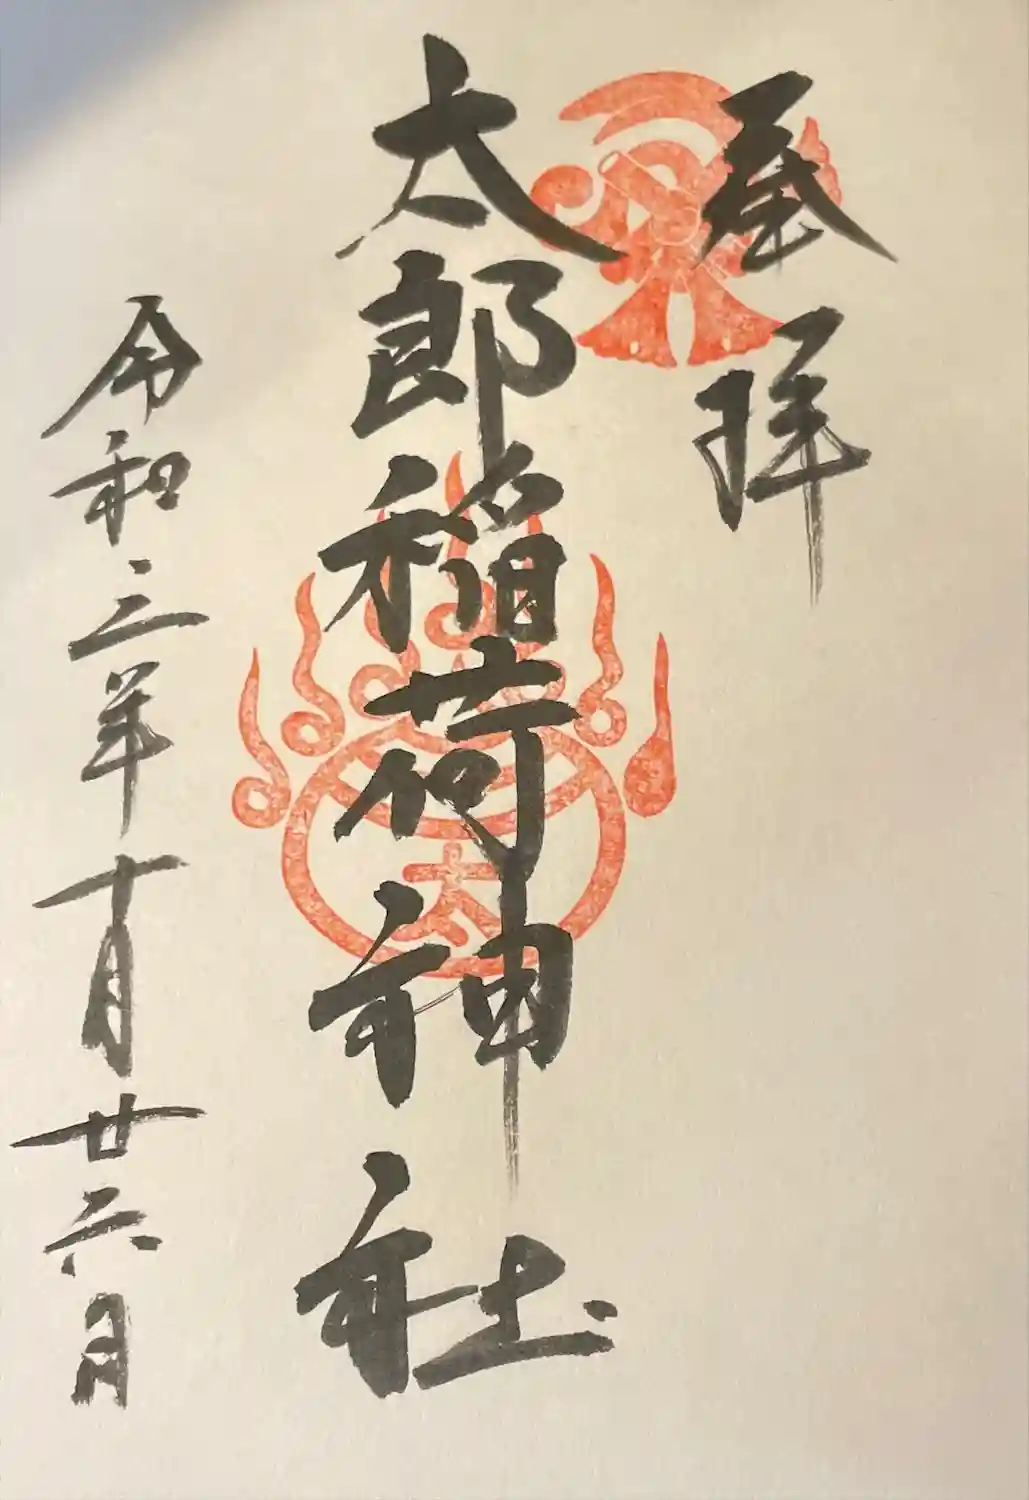 奉拝
太郎稲荷神社
令和三年十月廿六日
太